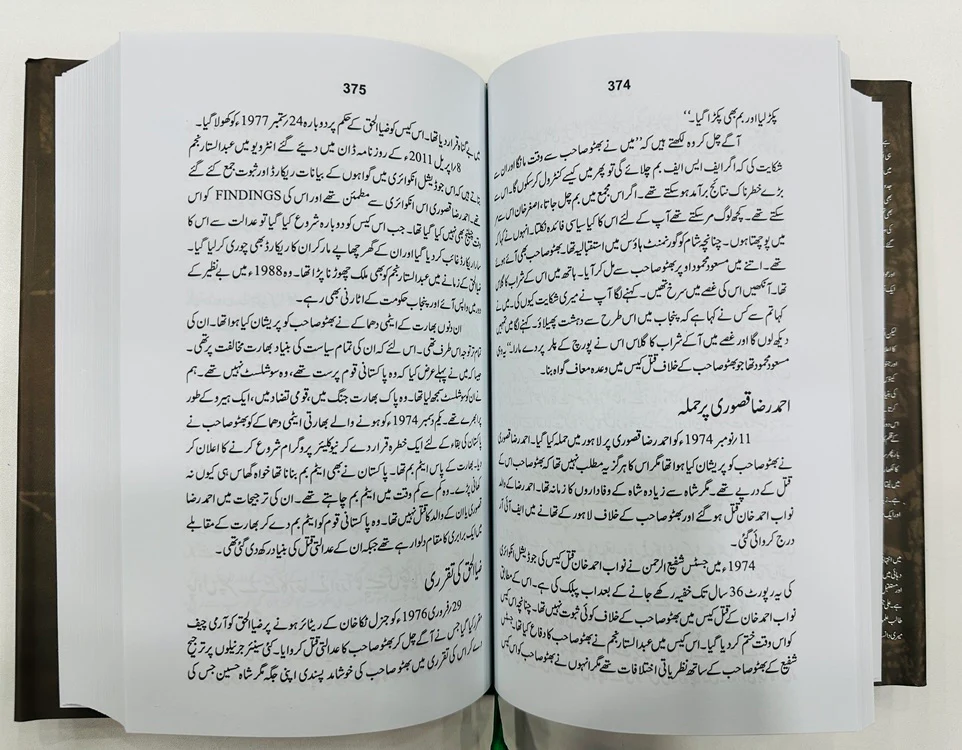 374
پکڑ لیا اور بم بھی پکڑا گیا۔‘‘
آگے چل کر وہ لکھتے ہیں کہ ’’میں نے بھٹو صاحب سے وقت مانگا اور ان سے
شکایت کی کہ اگر ایف ایس ایف بم چلائے گی تو پھر میں کیسے کنٹرول کر سکوں گا۔ اس کے
بڑے خطرناک نتائج برآمد ہو سکتے تھے۔ اگر اس مجمع میں بم چل جاتا، اصغر خان اس سے مر
سکتے تھے۔ کچھ لوگ مر سکتے تھے آپ کے لئے اس کا کیا سیاسی فائدہ نکلتا۔ انہوں نے کہا کہ
میں پوچھتا ہوں۔ چنانچہ شام کو گورنمنٹ ہاؤس میں استقبالیہ تھا۔ بھٹو صاحب بھی آئے ہوئے
تھے۔ اتنے میں مسعود محمود اوپر بھٹو صاحب سے مل کر آیا۔ ہاتھ میں اس کے شراب کا گلاس
تھا۔ آنکھیں اس کی غصے میں سرخ تھیں۔ کہنے لگا آپ نے میری شکایت کیوں کی۔ میں نے
کہا تم سے کس نے کہا ہے کہ پنجاب میں اس طرح سے دہشت پھیلاؤ۔ کہنے لگا میں تمہیں
دیکھ لوں گا اور غصے میں آ کے شراب کا گلاس اس نے پورچ کے پلر پر دے مارا۔‘‘ یہ وہی
مسعود محمود تھا جو بھٹو صاحب کے خلاف قتل کیس میں وعدہ معاف گواہ بنا۔
احمد رضا قصوری پر حملہ
11؍نومبر 1974ء کو احمد رضا قصوری پر لاہور میں حملہ کیا گیا۔ احمد رضا قصوری
نے بھٹو صاحب کو پریشان کیا ہوا تھا مگر اس کا ہرگز یہ مطلب نہیں تھا کہ بھٹو صاحب اس کے
قتل کے درپے تھے۔ مگر شاہ سے زیادہ شاہ کے وفاداروں کا زمانہ تھا۔ احمد رضا کے والد
نواب احمد خان قتل ہو گئے اور بھٹو صاحب کے خلاف لاہور کے تھانے میں ایف آئی آر
درج کروائی گئی۔
1974ء میں جسٹس شفیع الرحمن نے نواب احمد خان قتل کیس کی جوڈیشل انکوائری
کی یہ رپورٹ 36 سال تک خفیہ رکھے جانے کے بعد اب پبلک کی ہے۔ اس کے مطابق
نواب احمد خان کے قتل کیس میں بھٹو صاحب کے خلاف کوئی ثبوت نہیں تھا۔ چنانچہ اس کیس
کو اس وقت ختم کر دیا گیا۔ اس کیس میں عبدالستار نجم نے بھٹو صاحب کا دفاع کیا تھا۔ جسٹس
شفیع کے بھٹو صاحب کے ساتھ نظریاتی اختلافات تھے مگر انہوں نے بھٹو صاحب کو اس کیس
375
میں بے گناہ قرار دیا تھا۔ اس کیس کو ضیاالحق کے حکم پر دوبارہ 24؍ستمبر 1977ء کو کھولا گیا۔
8؍اپریل 2011ء کے روزنامہ ڈان میں دیئے گئے انٹرویو میں عبدالستار نجم
بتاتے ہیں کہ اس جوڈیشل انکوائری میں گواہوں کے بیانات ریکارڈ اور ثبوت جمع کئے گئے
تھے۔ احمد رضا قصوری اس انکوائری سے مطمئن تھے اور اس کی FINDINGS کو اس
چیلنج بھی نہیں کیا گیا تھا۔ جب اس کیس کو دوبارہ شروع کیا گیا تو عدالت سے اس کا
سارا ریکارڈ غائب کر دیا گیا اور ان کے گھر چھاپے مار کر ان کا ریکارڈ بھی چوری کر لیا گیا۔
ضیاالحق کے زمانے میں عبدالستار نجم کو بھی ملک چھوڑنا پڑا تھا۔ وہ 1988ء میں بے نظیر کے
دور میں واپس آئے اور پنجاب حکومت کے اٹارنی بھی رہے۔
ان دنوں بھارت کے ایٹمی دھماکے نے بھٹو صاحب کو پریشان کیا ہوا تھا۔ ان کی
تمام تر توجہ اس طرف تھی۔ اس لئے کہ ان کی تمام سیاست کی بنیاد بھارت مخالفت پر تھی۔
جیسا کہ میں نے پہلے عرض کیا کہ وہ پاکستانی قوم پرست تھے، وہ سوشلسٹ نہیں تھے۔ ہم
نے ان کو سوشلسٹ سمجھ لیا تھا۔ وہ پاک بھارت جنگ میں، قومی تضاد میں، ایک ہیرو کے طور
پر ابھرے تھے۔ یکم دسمبر 1974ء کو ہونے والے بھارتی ایٹمی دھماکے کو بھٹو صاحب نے
پاکستان کی بقاء کے لئے ایک خطرہ قرار دے کر نیوکلیئر پروگرام شروع کرنے کا اعلان کر
دیا۔ بھارت کے پاس ایٹم بم تھا۔ پاکستان نے بھی ایٹم بم بنانا تھا خواہ گھاس ہی کیوں نہ
کھانی پڑے۔ وہ کم سے کم وقت میں ایٹم بم چاہتے تھے۔ ان کی ترجیحات میں احمد رضا
قصوری یا ان کے والد کا قتل نہیں تھا۔ وہ پاکستانی قوم کو ایٹم بم دے کر بھارت کے مقابلے
میں ایک برابری کا مقام دلوا رہے تھے جبکہ ان کے عدالتی قتل کی بنیاد رکھ دی گئی تھی۔
ضیاالحق کی تقرری
29؍فروری 1976ء کو جنرل ٹکا خان کے ریٹائر ہونے پر ضیاالحق کو آرمی چیف
مقرر کیا گیا جس نے آگے چل کر بھٹو صاحب کا عدالتی قتل کروایا۔ کئی سینئر جرنیلوں پر ترجیح
دے کر اس کی تقرری میں بھٹو صاحب کی خوشامد پسندی اپنی جگہ مگر شاہ حسین جس کی